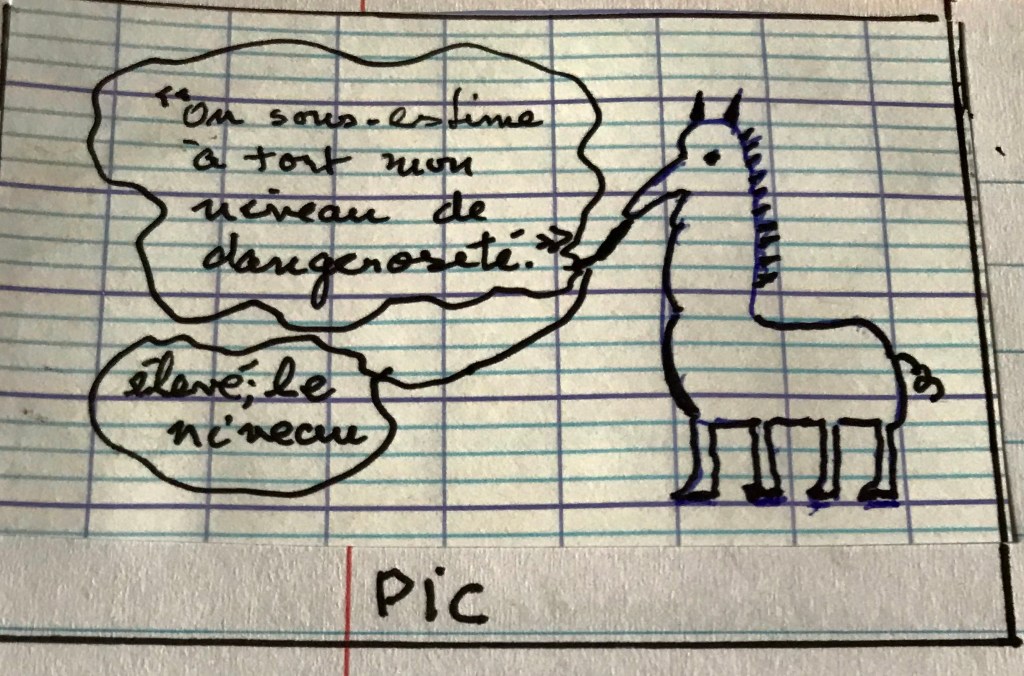 "On sous-estime
à tort mon
niveau de
dangerosité.»
élevé; le
niveau
PIC